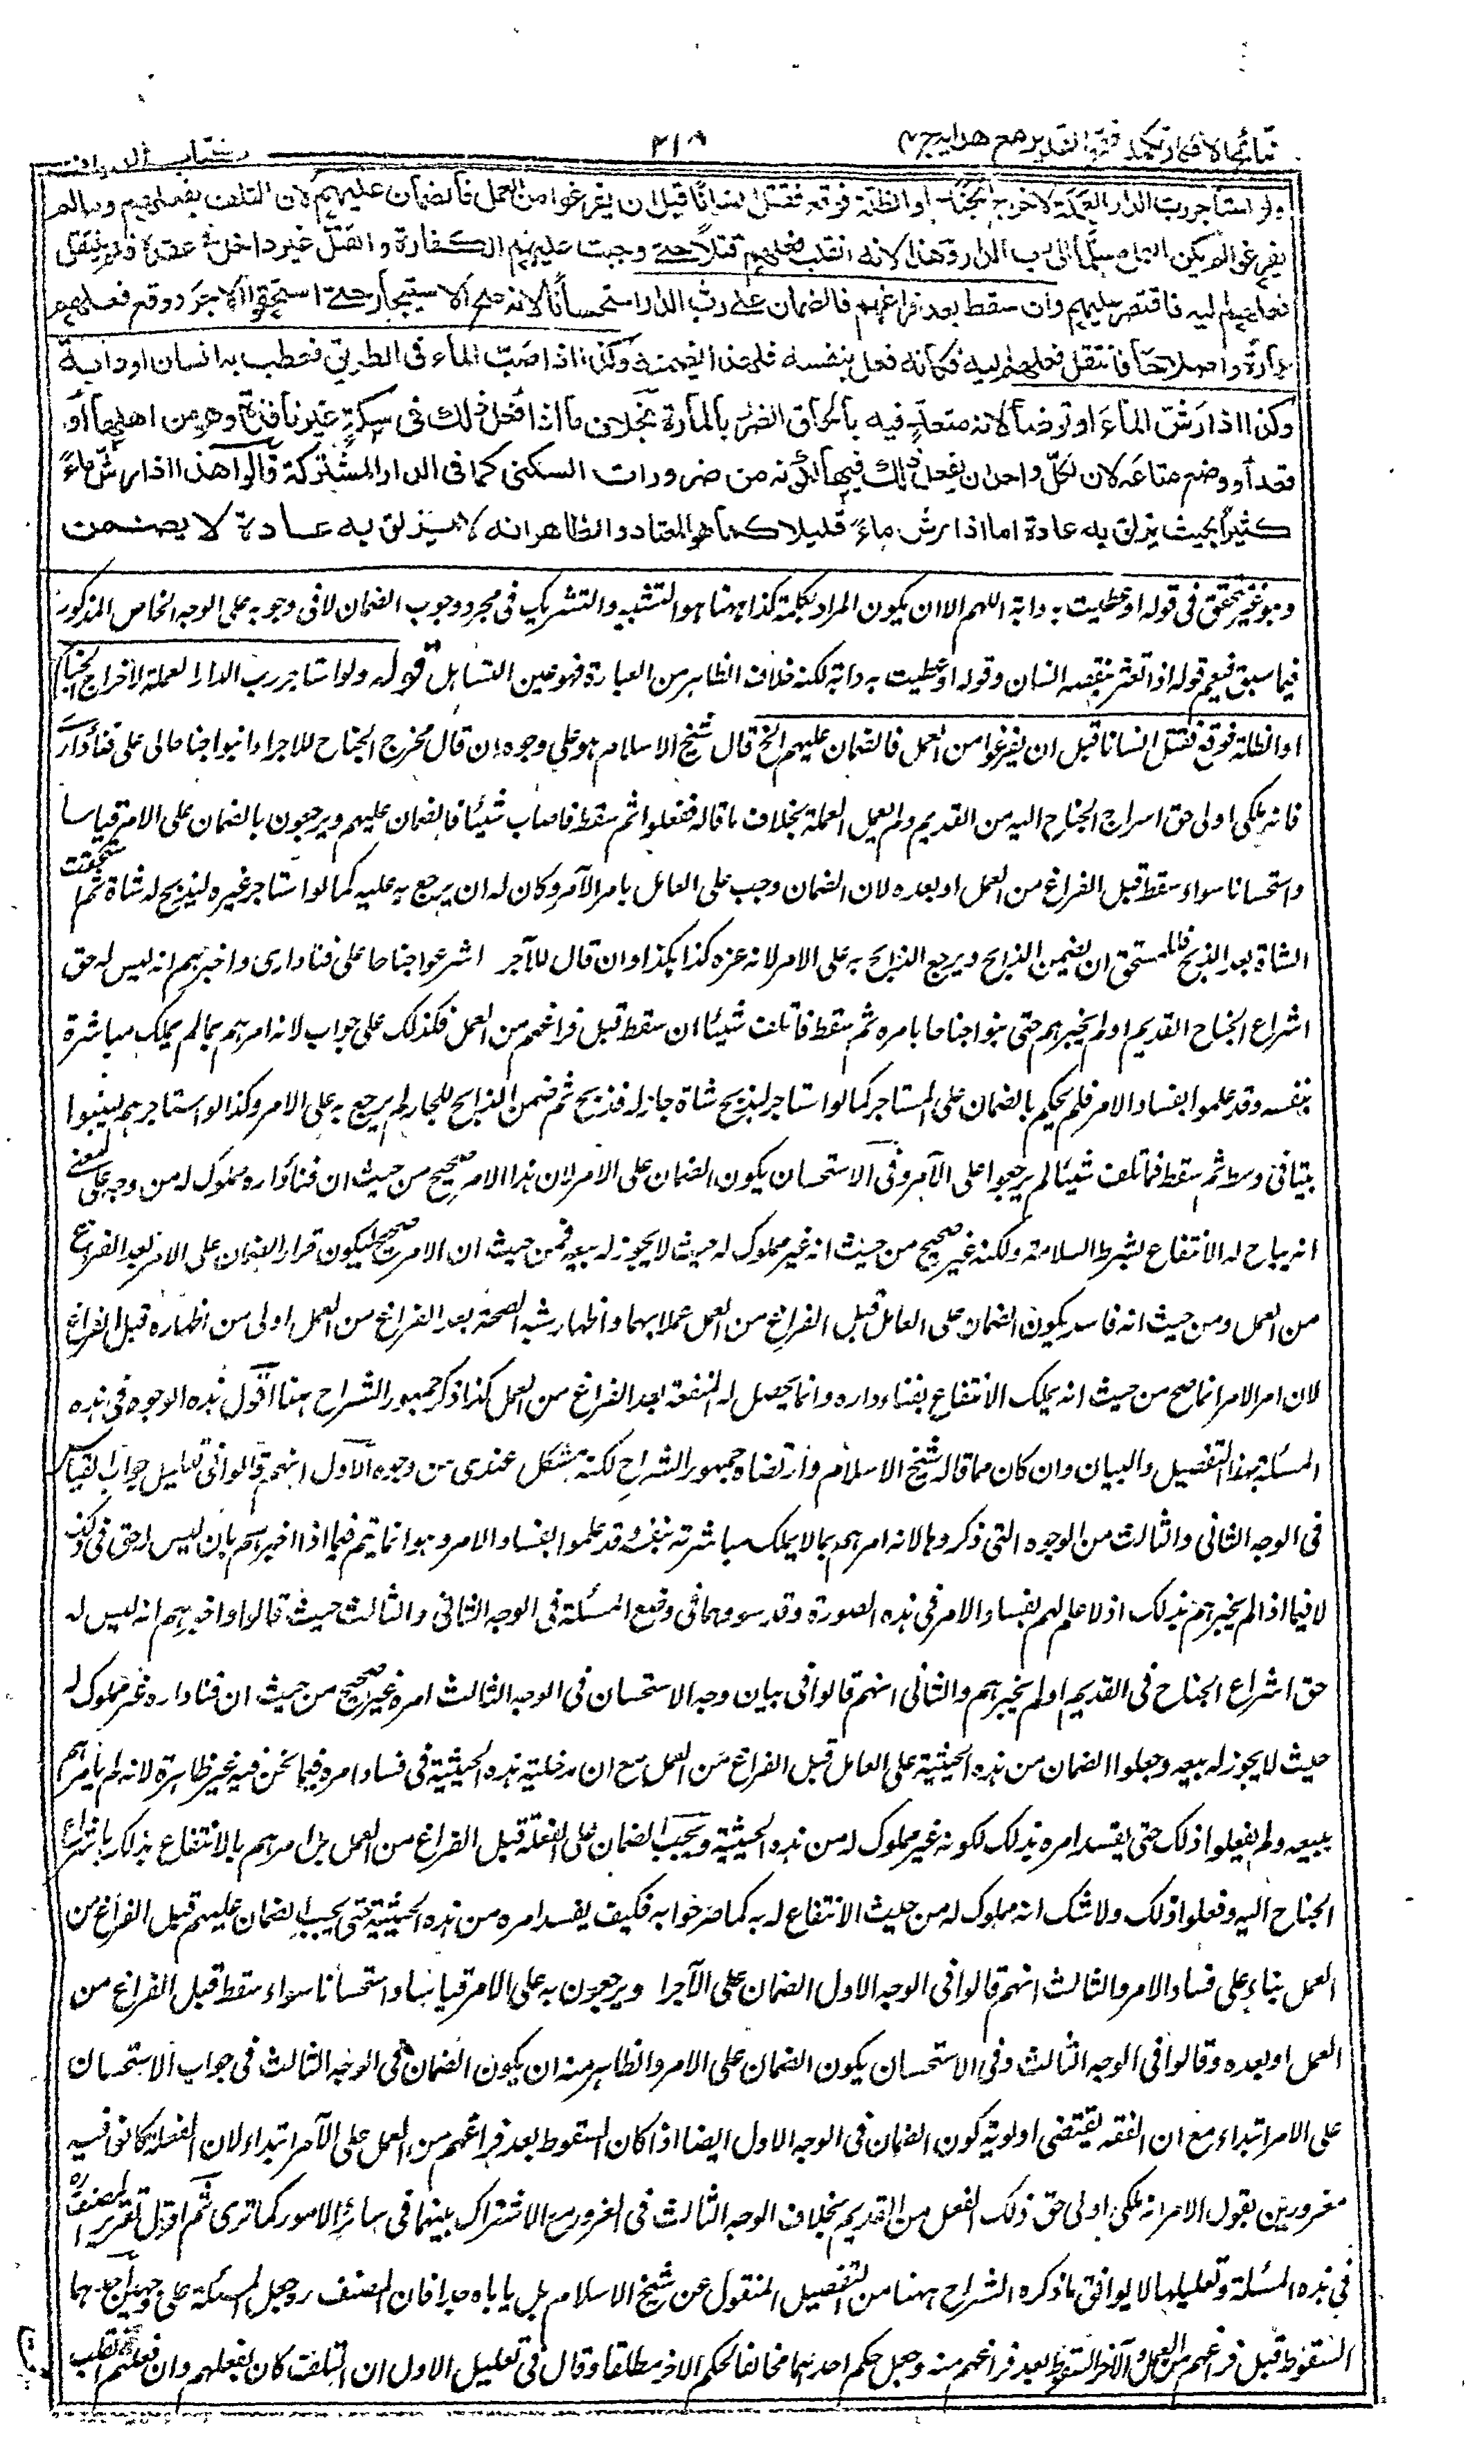 نتائج الافكار تكملة فتح القدير مع هدايه ج ٤ ٢١٨ كتاب الديات
ولو استأجر رب الدار العملة لاخراج الجناح او الظلة فوقع فقتل انسانا قبل ان يفرغوا من العمل فالضمان عليهم لان التلف بفعلهم وما لم
يفرغوا لم يكن العمل مسلما الى رب الدار وهذا لانه انقلب فعلهم قتلا حتى وجبت عليهم الكفارة والقتل غير داخل في عقده فلم ينتقل
فعلهم اليه فاقتصر عليهم وان سقط بعد فراغهم فالضمان على رب الدار استحسانا لانه صح الاستيجار حتى استحقوا الاجر ووقع فعلهم
عمارة واصلاحا فانتقل فعلهم اليه فكأنه فعل بنفسه فلهذا يضمنه وكذا اذا صب الماء في الطريق فعطب به انسان او دابة
وكذا اذا رش الماء او توضأ لانه متعد فيه بالحاق الضرر بالمارة بخلاف ما اذا فعل ذلك في سكة غير نافذة وهو من اهلها او
قعد او وضع متاعه لان لكل واحد ان يفعل ذلك فيها لكونه من ضرورات السكنى كما في الدار المشتركة قالوا هذا اذا رش ماء
كثيرا بحيث يزلق به عادة اما اذا رش ماء قليلا كما هو المعتاد والظاهر انه لا يزلق به عادة لا يضمن
وهو غير متحقق في قوله او عطبت به دابة اللهم الا ان يكون المراد بكلمة كذا ههنا هو التشبيه والتشريك في مجرد وجوب الضمان لا في وجوبه على الوجه الخاص المذكور
فيما سبق فيعم قوله اذا تعثر بنقضه انسان وقوله او عطبت به دابة لكنه خلاف الظاهر من العبارة فهو عين التساهل قوله ولو استأجر رب الدار العملة لاخراج الجناح
او الظلة فوقع فقتل انسانا قبل ان يفرغوا من العمل فالضمان عليهم الخ قال شيخ الاسلام هو على وجوه ان قال مخرج الجناح للاجراء ابنوا جناحا لي على فناء داري
فانه ملكي او لي حق اشراع الجناح اليه من القديم ولم يعلم العملة بخلاف ما قاله ففعلوا ثم سقط فاصاب شيئا فالضمان عليهم ويرجعون بالضمان على الآمر قياسا
واستحسانا سواء سقط قبل الفراغ من العمل او بعده لان الضمان وجب على العامل بامر الآمر وكان له ان يرجع به عليه كما لو استأجر غيره ليذبح له شاة ثم استحقت
الشاة بعد الذبح فللمستحق ان يضمن الذابح ويرجع الذابح به على الآمر لانه غره كذا هكذا وان قال للآجر اشرعوا جناحا على فناء داري واخبرهم انه ليس له حق
اشراع الجناح القديم او لم يخبرهم حتى بنوا جناحا بامره ثم سقط فاتلف شيئا ان سقط قبل فراغهم من العمل فكذلك على جواب لانه امرهم بما لم يملك مباشرة
بنفسه وقد علموا بفساد الامر فلم يحكم بالضمان على المستأجر كما لو استأجر ليذبح شاة جار له فذبح ثم ضمن الذابح للجار لم يرجع به على الآمر وكذا لو استأجرهم ليبنوا
بيتا في وسط ثم سقط فاتلف شيئا لم يرجعوا على الآمر وفي الاستحسان يكون الضمان على الآمر لان هذا الامر صحيح من حيث ان فناء داره مملوك له من وجه على معنى
انه يباح له الانتفاع بشرط السلامة ولكنه غير صحيح من حيث انه غير مملوك له حيث لا يجوز له بيعه فمن حيث ان الامر صحيح يكون قرار الضمان على الآمر بعد الفراغ
من العمل ومن حيث انه فاسد يكون الضمان على العامل قبل الفراغ من العمل عملا بهما واظهار شبه الصحة بعد الفراغ من العمل اولى من اظهاره قبل الفراغ
لان امر الآمر انما صح من حيث انه يملك الانتفاع بفناء داره وانما يحصل له المنفعة بعد الفراغ من العمل كذا ذكر جمهور الشراح هنا اقول هذه الوجوه في هذه
المسئلة بهذا التفصيل والبيان وان كان مما قاله شيخ الاسلام وارتضاه جمهور الشراح لكنه مشكل عندي من وجوه الاول انهم قالوا في تعليل جواب القياس
في الوجه الثاني والثالث من الوجوه التي ذكروها لانه امرهم بما لا يملك مباشرته بنفسه وقد علموا بفساد الامر وهو انما يتم فيما اذا اخبرهم بان ليس له حق في ذلك
لا فيما اذا لم يخبرهم بذلك اذ لا علم لهم بفساد الامر في هذه الصورة وقد سووهما في وضع المسئلة في الوجه الثاني والثالث حيث قالوا واخبرهم انه ليس له
حق اشراع الجناح في القديم او لم يخبرهم والثاني انهم قالوا في بيان وجه الاستحسان في الوجه الثالث امره غير صحيح من حيث ان فناء داره غير مملوك له
حيث لا يجوز له بيعه وجعلوا الضمان من هذه الحيثية على العامل قبل الفراغ من العمل مع ان مدخلية هذه الحيثية في فساد امره فيما نحن فيه غير ظاهرة لانه لم يأمرهم
ببيعه ولم يفعلوا ذلك حتى يفسد امره بذلك لكونه غير مملوك له من هذه الحيثية ويجب الضمان على الفعلة قبل الفراغ من العمل بل امرهم بالانتفاع بذلك باشراع
الجناح اليه وفعلوا ذلك ولا شك انه مملوك له من حيث الانتفاع له به كما صرحوا به فكيف يفسد امره من هذه الحيثية حتى يجب الضمان عليهم قبل الفراغ من
العمل بناء على فساد الامر والثالث انهم قالوا في الوجه الاول الضمان على الآجرا ويرجعون به على الآمر قياسا واستحسانا سواء سقط قبل الفراغ من
العمل او بعده وقالوا في الوجه الثالث وفي الاستحسان يكون الضمان على الآمر والظاهر منه ان يكون الضمان في الوجه الثالث في جواب الاستحسان
على الآمر ابتداء مع ان الفقه يقتضي اولوية كون الضمان في الوجه الاول ايضا اذا كان السقوط بعد فراغهم من العمل على الآمر ابتداء لان الفعلة كانوا فيه
مغرورين بقول الآمر انه ملكي او لي حق ذلك الفعل من القديم بخلاف الوجه الثالث في الغرور مع الاشتراك بينهما في سائر الامور كما ترى ثم اقول تقرير المصنف ره
في هذه المسئلة وتعليلها لا يوافق ما ذكره الشراح ههنا من التفصيل المنقول عن شيخ الاسلام بل ياباه جدا فان المصنف رح جعل المسئلة على وجهين احدهما
السقوط قبل فراغهم من العمل والآخر السقوط بعد فراغهم منه وجعل حكم احدهما مخالفا لحكم الآخر مطلقا وقال في تعليل الاول ان التلف كان بفعلهم وان فعلهم انقلب